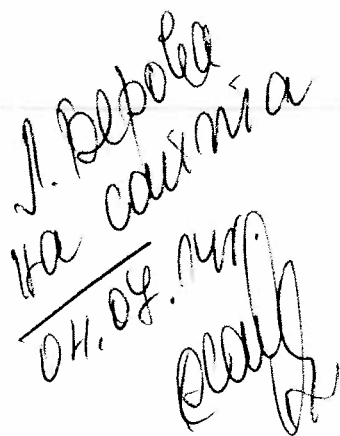 Л. Верова
на сайта
04.07.14г.